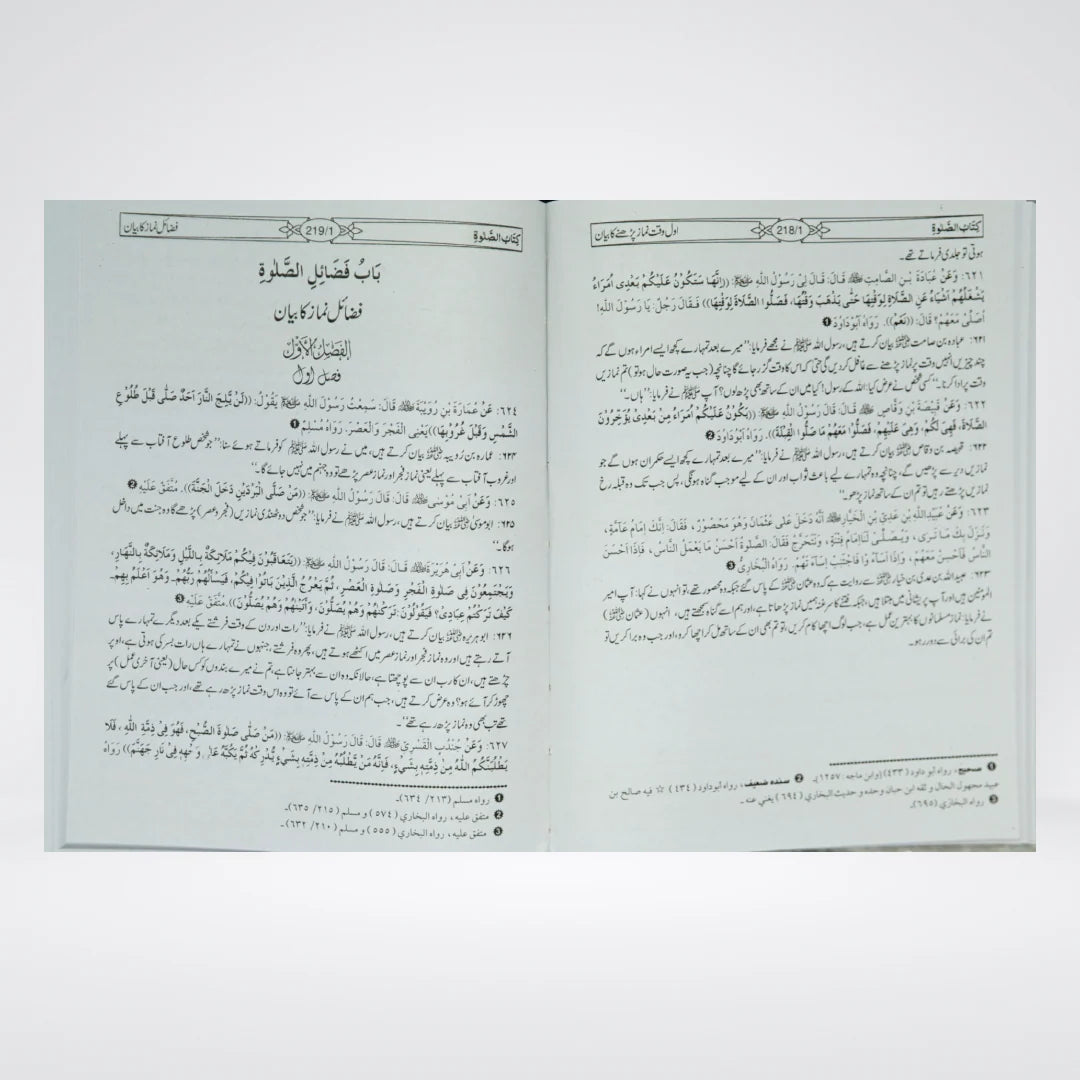 کِتَابُ الصَّلٰوةِ
218/1
اول وقت نماز پڑھنے کا بیان
ہوتی تو جلدی فرماتے تھے۔
٦٢١: وَعَنْ عُبَادَةَ بْنِ الصَّامِتِ ﷺ قَالَ: قَالَ لِیْ رَسُوْلُ اللّٰهِ ﷺ: ((اِنَّهَا سَتَكُوْنُ عَلَيْكُمْ بَعْدِیْ اُمَرَاءُ
يَشْغَلُهُمْ اَشْيَاءُ عَنِ الصَّلَاةِ لِوَقْتِهَا حَتّٰى يَذْهَبَ وَقْتُهَا، فَصَلُّوا الصَّلَاةَ لِوَقْتِهَا)) فَقَالَ رَجُلٌ: يَا رَسُوْلَ اللّٰهِ!
اُصَلِّیْ مَعَهُمْ؟ قَالَ: ((نَعَمْ)). رَوَاهُ اَبُوْدَاوُدَ ❶
۶۲۱: عبادہ بن صامت رضی اللہ عنہ بیان کرتے ہیں، رسول اللہ ﷺ نے مجھے فرمایا: ”میرے بعد تمہارے کچھ ایسے امراء ہوں گے کہ
چند چیزیں انہیں وقت پر نماز پڑھنے سے غافل کر دیں گی حتیٰ کہ اس کا وقت گزر جائے گا چنانچہ (جب یہ صورت حال ہو تو) تم نمازیں
وقت پر ادا کرنا۔“ کسی شخص نے عرض کیا: اللہ کے رسول! کیا میں ان کے ساتھ بھی پڑھ لوں؟ آپ ﷺ نے فرمایا: ”ہاں۔“
٦٢٢: وَعَنْ قَبِيْصَةَ بْنِ وَقَّاصٍ قَالَ: قَالَ رَسُوْلُ اللّٰهِ ﷺ: ((يَكُوْنُ عَلَيْكُمْ اُمَرَاءُ مِنْ بَعْدِیْ يُؤَخِّرُوْنَ
الصَّلَاةَ، فَهِیَ لَكُمْ، وَهِیَ عَلَيْهِمْ، فَصَلُّوْا مَعَهُمْ مَا صَلَّوُا الْقِبْلَةَ)). رَوَاهُ اَبُوْدَاوُدَ ❷
۶۲۲: قبیصہ بن وقاص رضی اللہ عنہ بیان کرتے ہیں، رسول اللہ ﷺ نے فرمایا: ”میرے بعد تمہارے کچھ ایسے حکمران ہوں گے جو
نمازیں دیر سے پڑھیں گے، چنانچہ وہ تمہارے لیے باعث ثواب اور ان کے لیے موجب گناہ ہوگی، پس جب تک وہ قبلہ رخ
نمازیں پڑھتے رہیں تو تم ان کے ساتھ نماز پڑھو۔“
٦٢٣: وَعَنْ عُبَيْدِاللّٰهِ بْنِ عَدِیِّ بْنِ الْخِيَارِ اَنَّهُ دَخَلَ عَلٰى عُثْمَانَ وَهُوَ مَحْصُوْرٌ، فَقَالَ: اِنَّكَ اِمَامُ عَامَّةٍ،
وَنَزَلَ بِكَ مَا تَرٰى، وَيُصَلِّیْ لَنَا اِمَامُ فِتْنَةٍ، وَنَتَحَرَّجُ فَقَالَ: الصَّلٰوةُ اَحْسَنُ مَا يَعْمَلُ النَّاسُ، فَاِذَا اَحْسَنَ
النَّاسُ فَاَحْسِنْ مَعَهُمْ، وَاِذَا اَسَآءُ وْا فَاجْتَنِبْ اِسَآءَتَهُمْ. رَوَاهُ الْبُخَارِیُّ ❸
۶۲۳: عبیداللہ بن عدی بن خیار رحمہ اللہ سے روایت ہے کہ وہ عثمان رضی اللہ عنہ کے پاس گئے جبکہ وہ محصور تھے، تو انہوں نے کہا: آپ امیر
المومنین ہیں اور آپ پریشانی میں مبتلا ہیں، جبکہ فتنے کا سرغنہ ہمیں نماز پڑھاتا ہے، اور ہم اسے گناہ سمجھتے ہیں، انہوں (عثمان رضی اللہ عنہ)
نے فرمایا: نماز مسلمانوں کا بہترین عمل ہے، جب لوگ اچھا کام کریں، تو تم بھی ان کے ساتھ مل کر اچھا کرو، اور جب وہ برا کریں تو
تم ان کی برائی سے دور رہو۔
❶ صحیح، رواہ أبو داود (٤٣٣) [وابن ماجه: ١٢٥٧]۔ ❷ سنده ضعيف، رواه أبوداود (٤٣٤) ☆ فيه صالح بن
عبيد مجهول الحال و ثقه ابن حبان وحده و حديث البخاري (٦٩٤) يغني عنه۔
❸ رواه البخاري (٦٩٥)۔
کِتَابُ الصَّلٰوةِ
219/1
فضائل نماز کا بیان
بَابُ فَضَائِلِ الصَّلٰوةِ
فضائل نماز کا بیان
الْفَصْلُ الْاَوَّلُ
فصل اول
٦٢٤: عَنْ عُمَارَةَ بْنِ رُوَيْبَةَ قَالَ: سَمِعْتُ رَسُوْلَ اللّٰهِ ﷺ يَقُوْلُ: ((لَنْ يَّلِجَ النَّارَ اَحَدٌ صَلّٰى قَبْلَ طُلُوْعِ
الشَّمْسِ وَقَبْلَ غُرُوْبِهَا)) يَعْنِی الْفَجْرَ وَالْعَصْرَ. رَوَاهُ مُسْلِمٌ ❶
۶۲۴: عمارہ بن رویبہ رضی اللہ عنہ بیان کرتے ہیں، میں نے رسول اللہ ﷺ کو فرماتے ہوئے سنا: ”جو شخص طلوع آفتاب سے پہلے
اور غروب آفتاب سے پہلے یعنی نماز فجر اور نماز عصر پڑھے تو وہ جہنم میں نہیں جائے گا۔“
٦٢٥: وَعَنْ اَبِیْ مُوْسٰى قَالَ: قَالَ رَسُوْلُ اللّٰهِ ﷺ: ((مَنْ صَلَّى الْبَرْدَيْنِ دَخَلَ الْجَنَّةَ)). مُتَّفَقٌ عَلَيْهِ ❷
۶۲۵: ابو موسیٰ رضی اللہ عنہ بیان کرتے ہیں، رسول اللہ ﷺ نے فرمایا: ”جو شخص دو ٹھنڈی نمازیں (فجر و عصر) پڑھے گا وہ جنت میں داخل
ہوگا۔“
٦٢٦: وَعَنْ اَبِیْ هُرَيْرَةَ قَالَ: قَالَ رَسُوْلُ اللّٰهِ ﷺ: ((يَتَعَاقَبُوْنَ فِيْكُمْ مَلَائِكَةٌ بِاللَّيْلِ وَمَلَائِكَةٌ بِالنَّهَارِ،
وَيَجْتَمِعُوْنَ فِیْ صَلَاةِ الْفَجْرِ وَصَلٰوةِ الْعَصْرِ، ثُمَّ يَعْرُجُ الَّذِيْنَ بَاتُوْا فِيْكُمْ، فَيَسْاَلُهُمْ رَبُّهُمْ۔ وَهُوَ اَعْلَمُ بِهِمْ۔
كَيْفَ تَرَكْتُمْ عِبَادِیْ؟ فَيَقُوْلُوْنَ: تَرَكْنٰهُمْ وَهُمْ يُصَلُّوْنَ، وَاَتَيْنٰهُمْ وَهُمْ يُصَلُّوْنَ)). مُتَّفَقٌ عَلَيْهِ ❸
۶۲۶: ابو ہریرہ رضی اللہ عنہ بیان کرتے ہیں، رسول اللہ ﷺ نے فرمایا: ”رات اور دن کے وقت فرشتے یکے بعد دیگرے تمہارے پاس
آتے رہتے ہیں اور وہ نماز فجر اور نماز عصر میں اکٹھے ہوتے ہیں، پھر وہ فرشتے، جنہوں نے تمہارے ہاں رات بسر کی ہوتی ہے، اوپر
چڑھتے ہیں، ان کا رب ان سے پوچھتا ہے، حالانکہ وہ ان سے بہتر جانتا ہے، تم نے میرے بندوں کو کس حال (یعنی آخری عمل) پر
چھوڑ کر آئے ہو؟ وہ عرض کرتے ہیں، جب ہم ان کے پاس سے آئے تو وہ اس وقت نماز پڑھ رہے تھے، اور جب ان کے پاس گئے
تھے تب بھی وہ نماز پڑھ رہے تھے“۔
٦٢٧: وَعَنْ جُنْدُبِ الْقَسْرِیِّ قَالَ: قَالَ رَسُوْلُ اللّٰهِ ﷺ: ((مَنْ صَلّٰى صَلٰوةَ الصُّبْحِ، فَهُوَ فِیْ ذِمَّةِ اللّٰهِ، فَلَا
يَطْلُبَنَّكُمُ اللّٰهُ مِنْ ذِمَّتِهٖ بِشَیْءٍ، فَاِنَّهُ مَنْ يَّطْلُبْهُ مِنْ ذِمَّتِهٖ بِشَیْءٍ يُّدْرِكْهُ ثُمَّ يَكُبَّهُ عَلٰى وَجْهِهٖ فِیْ نَارِ جَهَنَّمَ)) رَوَاهُ
❶ رواه مسلم (٢١٣/ ٦٣٤)۔
❷ متفق عليه، رواه البخاري (٥٧٤) و مسلم (٢١٥/ ٦٣٥)۔
❸ متفق عليه، رواه البخاري (٥٥٥) و مسلم (٢١٠/ ٦٣٢)۔